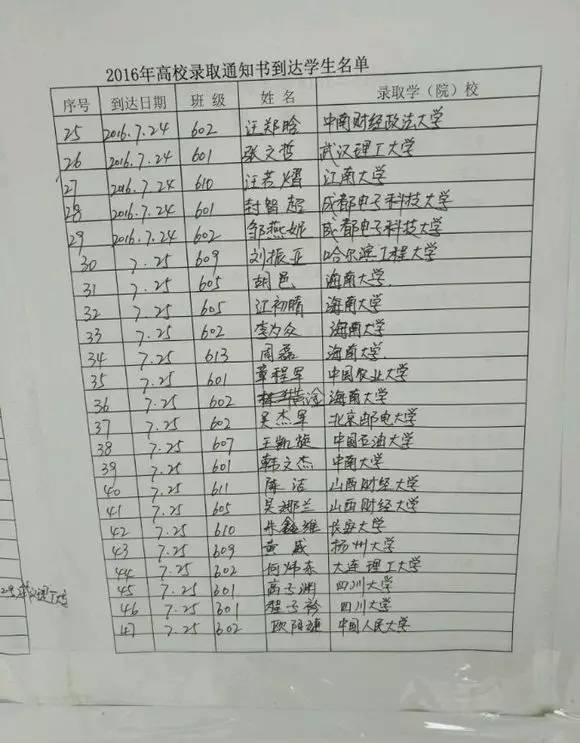 2016年高校录取通知书到达学生名单
序号 到达日期 班级 姓名 录取学（院）校
25 2016.7.24 602 汪郑晗 中南财经政法大学
26 2016.7.24 601 张文哲 武汉理工大学
27 2016.7.24 610 汪若熠 江南大学
28 2016.7.24 601 封智超 成都电子科技大学
29 2016.7.24 602 邹燕妮 成都电子科技大学
30 7.25 609 刘振亚 哈尔滨工程大学
31 7.25 605 胡邑 海南大学.
32 7.25 605 江初晴 海南大学
33 7.25 602 李为众 海南大学
34 7.25 613 周磊 海南大学.
35 7.25 601 章程军 中国农业大学
36 7.25 602 海南大学
37 7.25 602 吴杰军 北京邮电大学
38 7.25 607 王凯旋 中国石油大学
39 7.25 601 韩文杰 中南大学
40 7.25 611 陈洁 山西财经大学
41 7.25 605 吴娜兰 山西财经大学
42 7.25 610 朱鑫雄 长安大学
43 7.25 609 黄威 扬州大学
44 7.25 602 何炜东 大连理工大学
45 7.25 601 高子渊 四川大学
46 7.25 601 程子衿 四川大学
47 7.25 602 欧阳 中国人民大学
理工大学